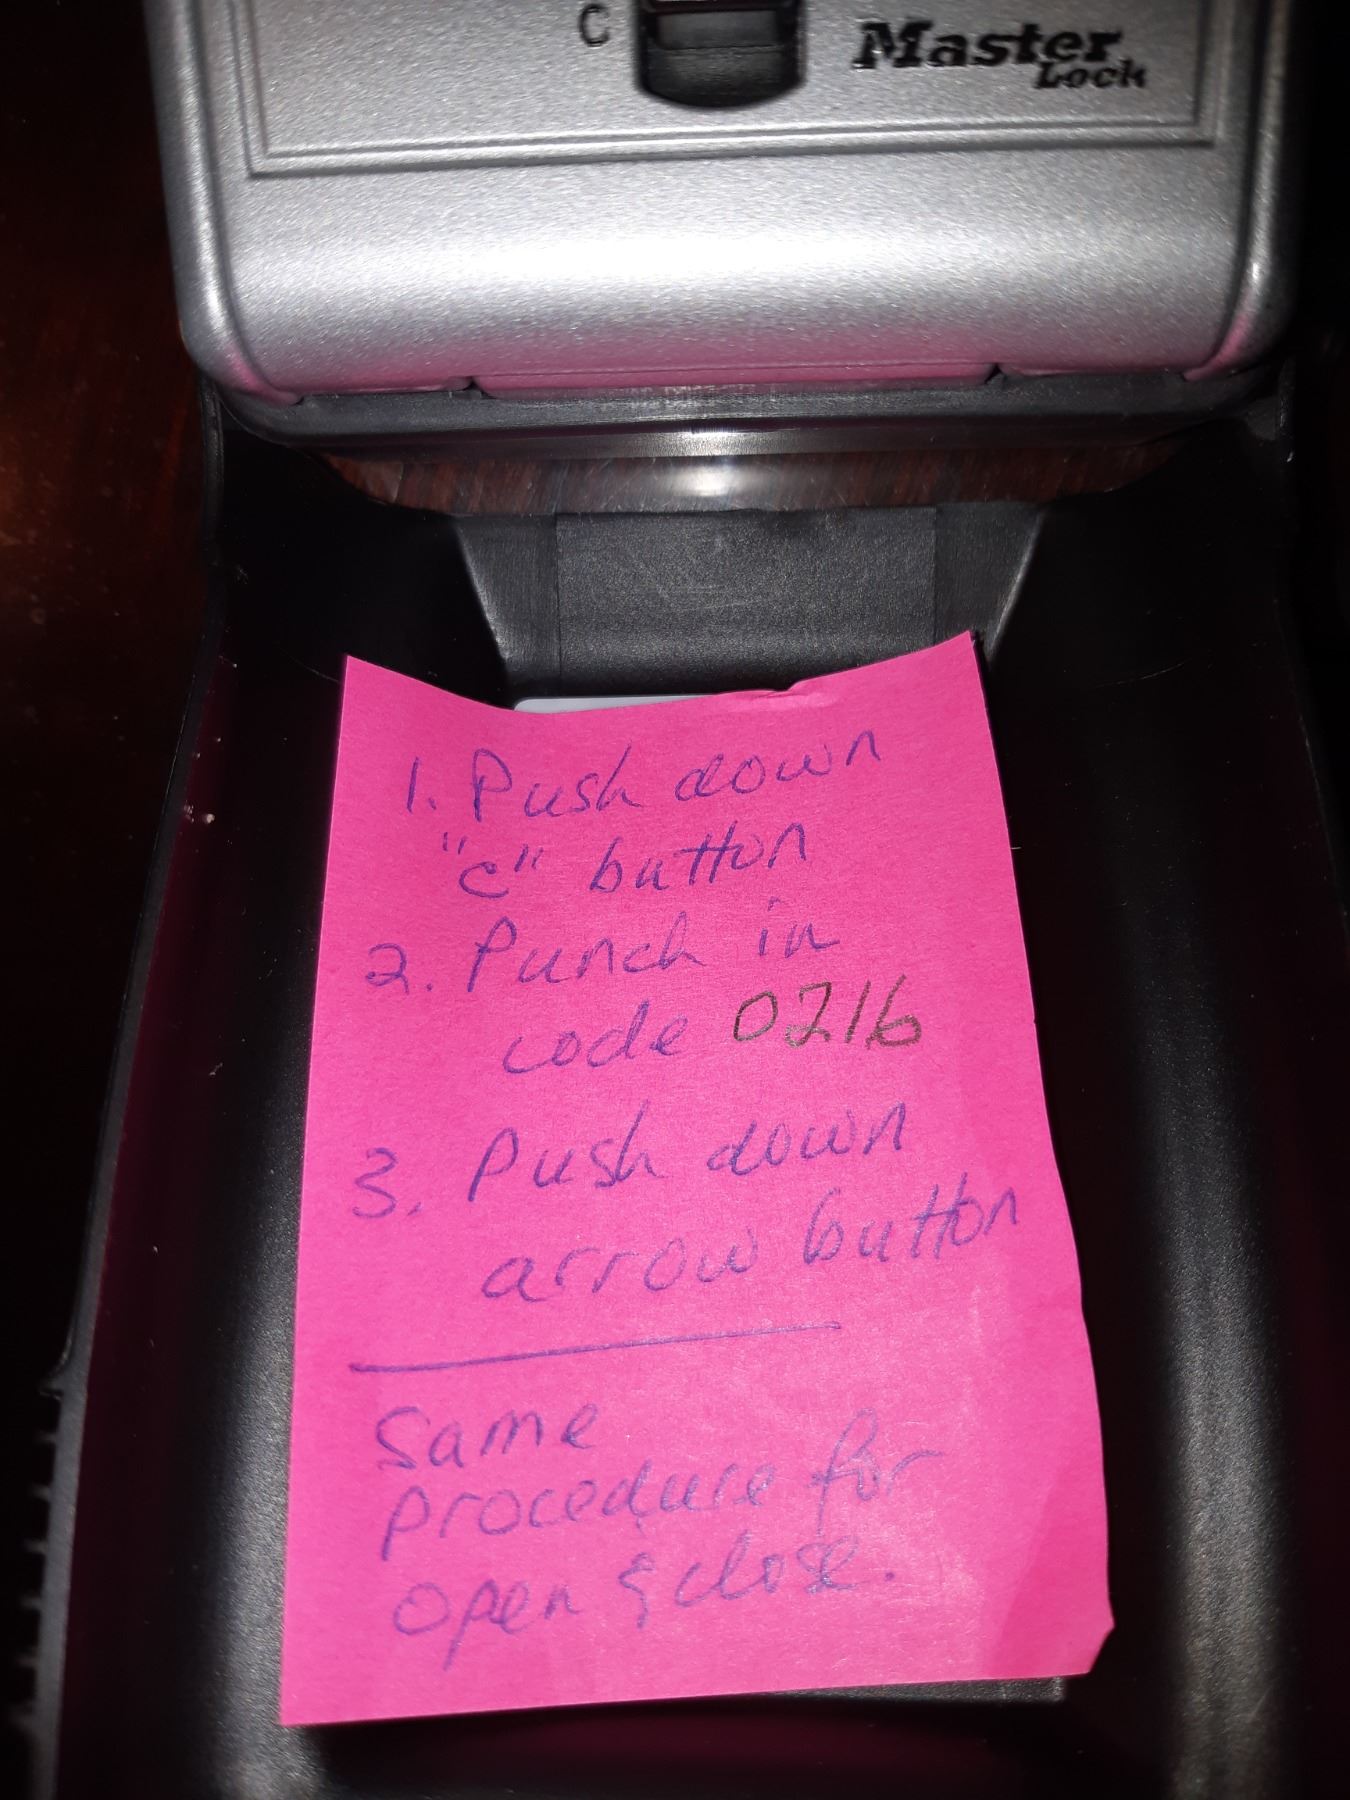 C
Master
Lock
1. Push down
"C" button
2. Punch in
code 0216
3. Push down
arrow button
Same
procedure for
open & close.